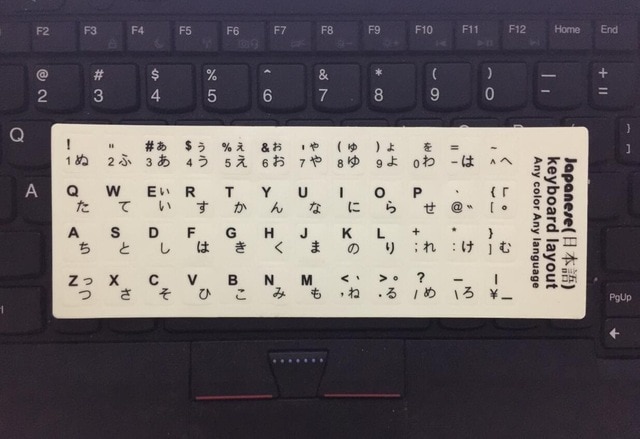 F2 F3 F4 F5 F6 F7 F8 F9 F10 F11 F12 Home End
@ # $ % ^ & * ( ) — +
2 3 4 5 6 7 8 9 0 - =
Q
A
! " #ぁ $ぅ %ぇ &ぉ 'ゃ (ゅ )ょ を = ~
1ぬ 2ふ 3あ 4う 5え 6お 7や 8ゆ 9よ 0わ -は ^へ
Q W Eぃ R T Y U I O P ` {「
た て い す か ん な に ら せ @゛ [ ゜
A S D F G H J K L + * }
ち と し は き く ま の り ;れ :け ]む
Zっ X C V B N M <、 >。 ? _ |
つ さ そ ひ こ み も ,ね .る /め \ろ ¥ー
Japanese(日本語)
keyboard layout
Any color Any language
}
]
PgUp